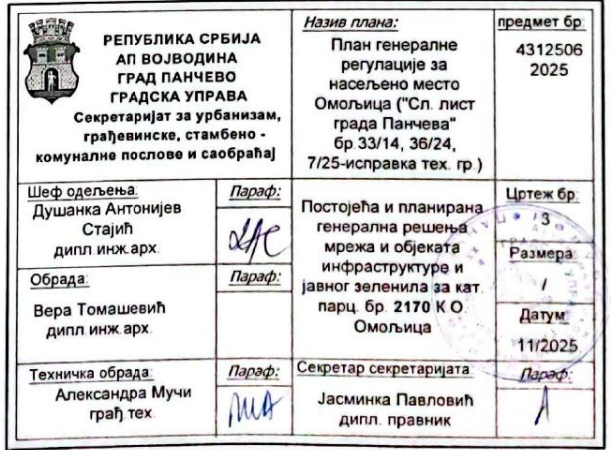 РЕПУБЛИКА СРБИЈА
АП ВОЈВОДИНА
ГРАД ПАНЧЕВО
ГРАДСКА УПРАВА
Секретаријат за урбанизам,
грађевинске, стамбено -
комуналне послове и саобраћај
Назив плана:
План генералне
регулације за
насељено место
Омољица ("Сл. лист
града Панчева"
бр.33/14, 36/24,
7/25-исправка тех. гр.)
предмет бр:
4312506
2025
Шеф одељења:
Душанка Антонијев
Стајић
дипл.инж.арх.
Параф:
Обрада:
Вера Томашевић
дипл.инж.арх.
Параф:
Техничка обрада:
Александра Мучи
грађ.тех.
Параф:
Постојећа и планирана
генерална решења
мрежа и објеката
инфраструктуре и
јавног зеленила за кат.
парц. бр. 2170 К.О.
Омољица
Цртеж бр:
3
Размера:
/
Датум:
11/2025
Секретар секретаријата:
Јасминка Павловић
дипл. правник
Параф: